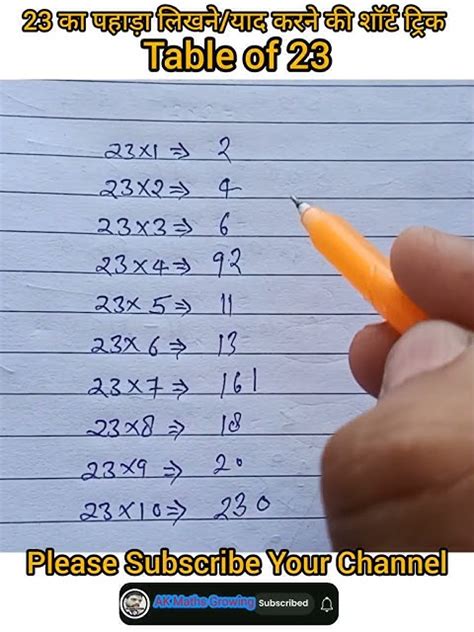 23 का पहाड़ा लिखने/याद करने की शॉर्ट ट्रिक
Table of 23
23x1⇒ 2
23x2⇒ 4
23x3⇒ 6
23x4⇒ 92
23x5⇒ 11
23x6⇒ 13
23x7⇒ 161
23x8⇒ 18
23x9⇒ 20
23x10⇒ 230
Please Subscribe Your Channel
AK Maths Growing Subscribed